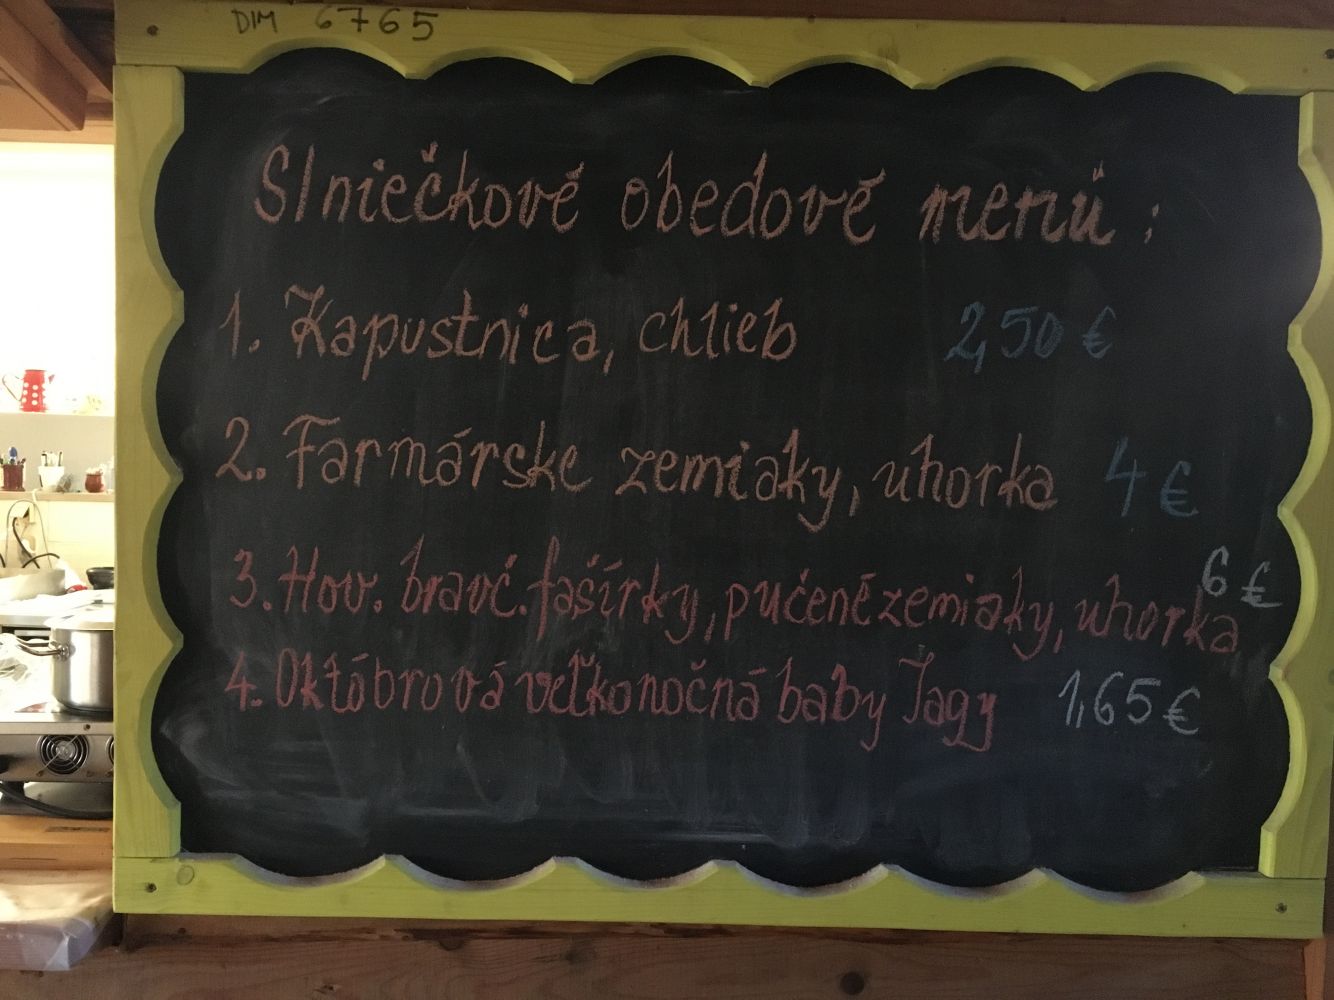 DIM 6765
Slniečkové obedové menú :
1. Kapustnica, chlieb 2,50 €
2. Farmárske zemiaky, uhorka 4 €
3. Hov. bravč. fašírky, pučené zemiaky, uhorka 6 €
4. Októbrová veľkonočná baby Jagy 1,65 €